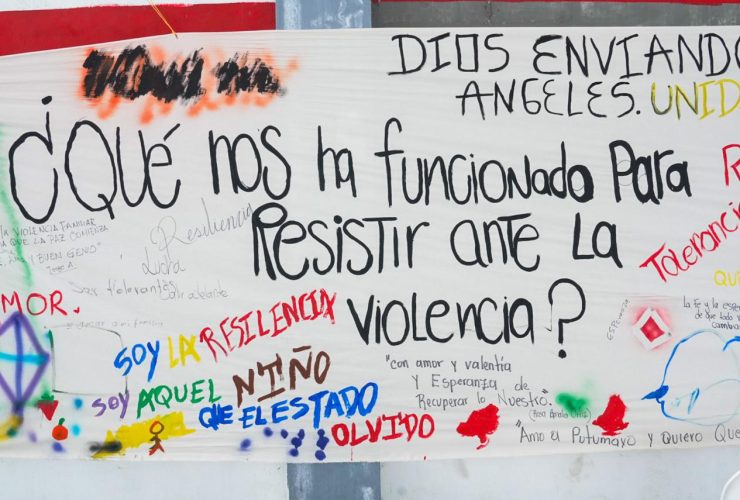 DIOS ENVIANDO
ANGELES. UNID
¿QUÉ NOS ha funcionado Para
RESISTIR ANTE LA
violencia?
LA VIOLENCIA FAMILIAR
QUE LA PAZ COMIENZA
Y BUEN GENIO"
Resiliencia
Lucha
Ser tolerantes
Salir adelante
Tolerancia
MOR.
QU
ESPERANZA
La Fe y la espe
de que todo
cambia
SOY LA RESILIENCIA
SOY AQUEL NIÑO
QUE EL ESTADO
OLVIDO
"con amor y valentía
y Esperanza de
Recuperar lo Nuestro".
"Amo el Putumayo y Quiero Que